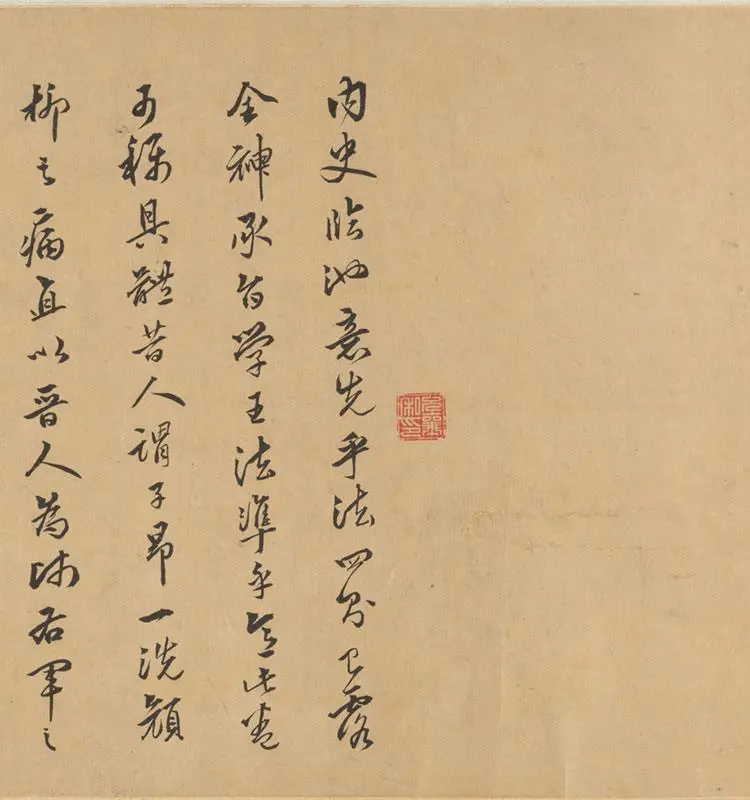 内史臨池意先乎法四已露
全神承旨學王法準乎意此卷
可稱具體昔人謂子昂一洗顏
柳之病直以晉人為師右軍之